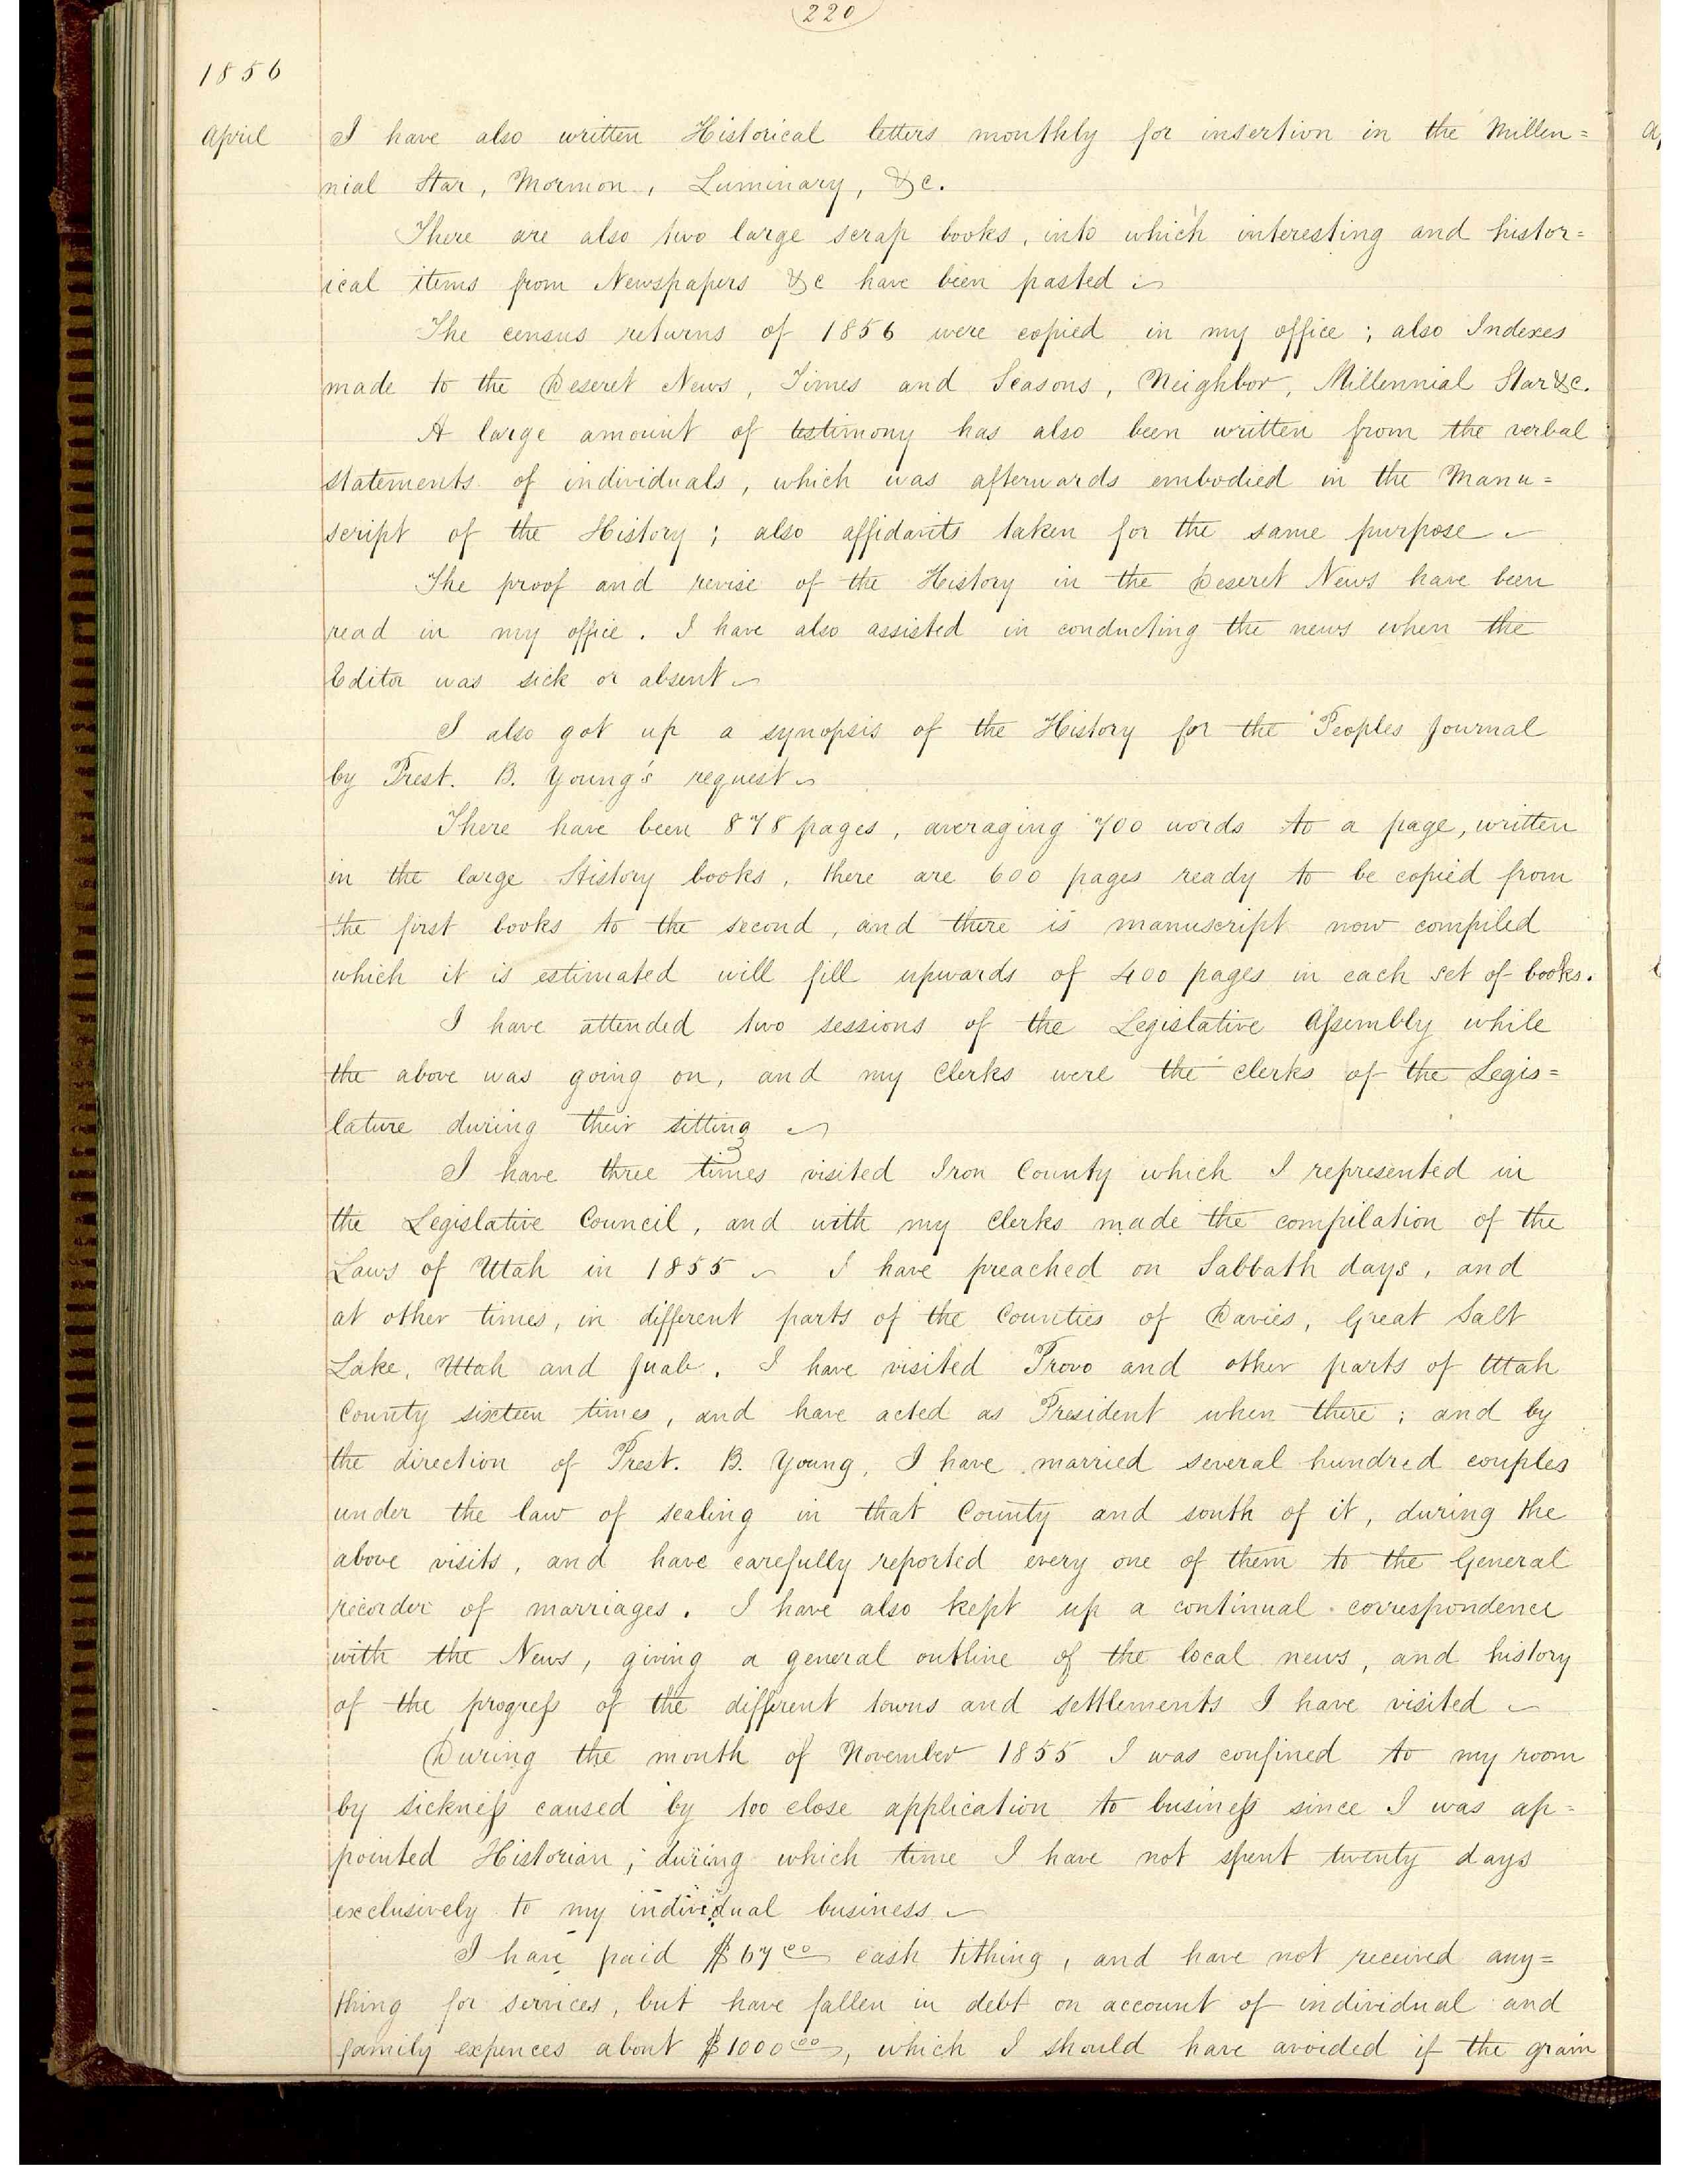 220
1856
April I have also written Historical letters monthly for insertion in the Millen=
nial Star, Mormon, Luminary, &c.
There are also two large scrap books, into which interesting and histor=
ical items from Newspapers &c have been pasted
The census returns of 1856 were copied in my office; also Indexes
made to the Deseret News, Times and Seasons, Neighbor, Millennial Star &c.
A large amount of testimony has also been written from the verbal
statements of individuals, which was afterwards embodied in the Manu=
script of the History; also affidavits taken for the same purpose
The proof and revise of the History in the Deseret News have been
read in my office. I have also assisted in conducting the news when the
Editor was sick or absent
I also got up a synopsis of the History for the Peoples Journal
by Prest. B. Young's request
There have been 878 pages, averaging 700 words to a page, written
in the large History books, there are 600 pages ready to be copied from
the first books to the second, and there is manuscript now compiled
which it is estimated will fill upwards of 400 pages in each set of books.
I have attended two sessions of the Legislative Assembly while
the above was going on, and my Clerks were the clerks of the Legis=
lature during their sitting
I have three times visited Iron County which I represented in
the Legislative Council, and with my Clerks made the compilation of the
Laws of Utah in 1855 I have preached on Sabbath days, and
at other times, in different parts of the Counties of Davies, Great Salt
Lake, Utah and Juab. I have visited Provo and other parts of Utah
County sixteen times, and have acted as President when there; and by
the direction of Prest. B. Young, I have married several hundred couples
under the law of sealing in that County and south of it, during the
above visits, and have carefully reported every one of them to the General
recorder of marriages. I have also kept up a continual correspondence
with the News, giving a general outline of the local news, and history
of the progress of the different towns and settlements I have visited
During the month of November 1855 I was confined to my room
by sickness caused by too close application to business since I was ap=
pointed Historian; during which time I have not spent twenty days
exclusively to my individual business
I have paid $67 00 cash tithing, and have not received any=
thing for services, but have fallen in debt on account of individual and
family expences about $1000 00, which I should have avoided if the grain